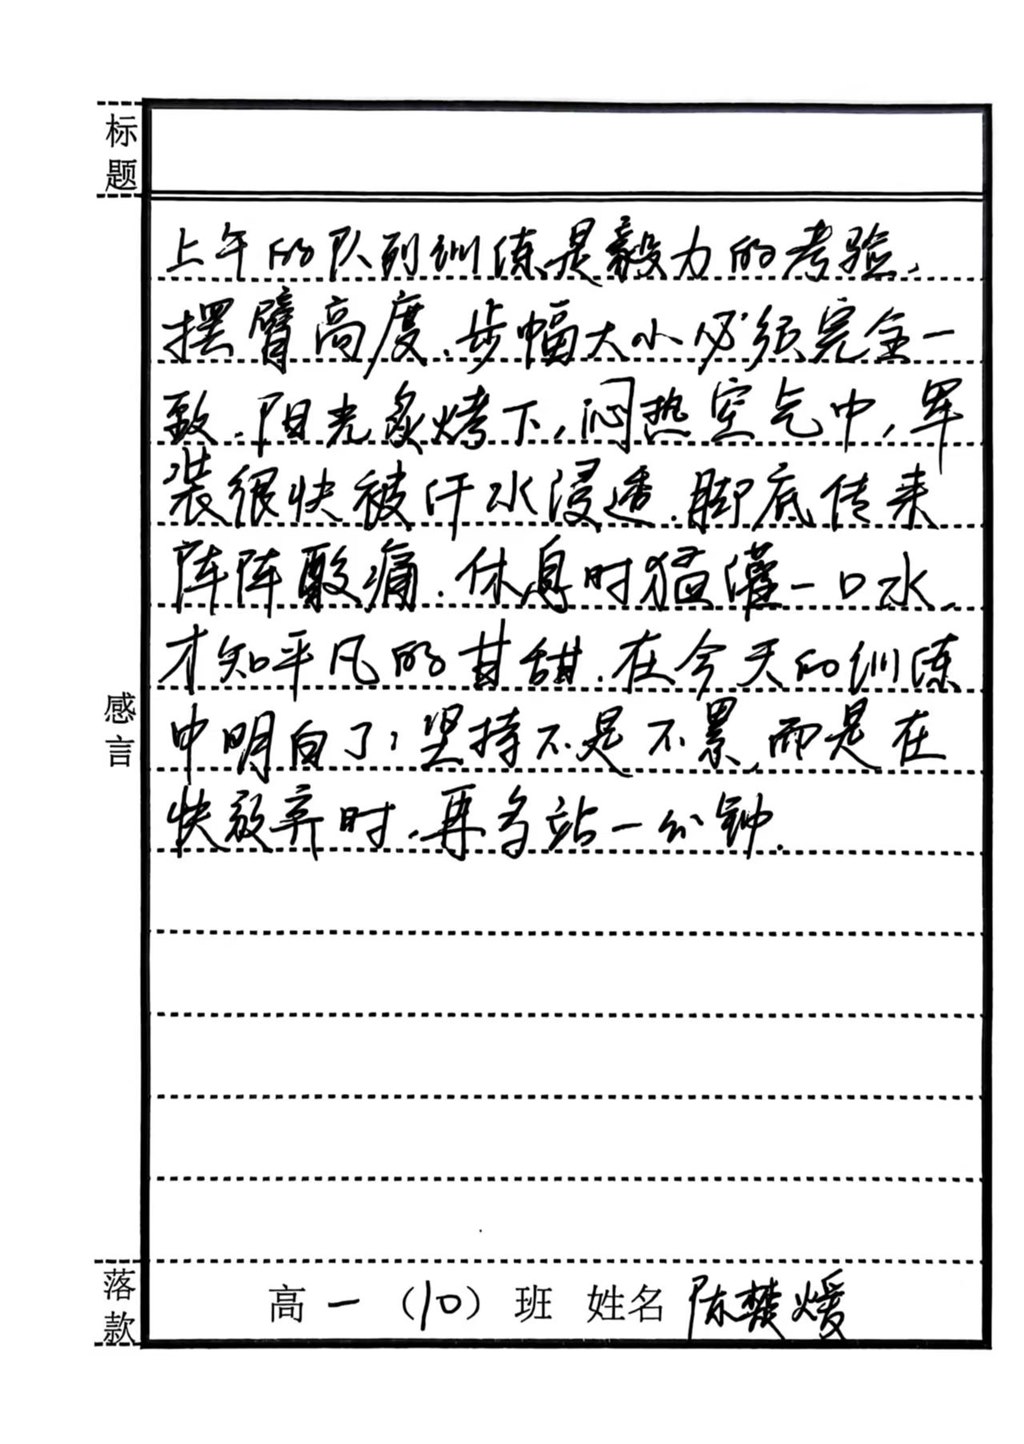 标题
上午的队列训练是毅力的考验,
摆臂高度、步幅大小必须完全一
致.阳光炙烤下,闷热空气中,军
装很快被汗水浸透.脚底传来
阵阵酸痛.休息时猛灌一口水,
才知平凡的甘甜.在今天的训练
中明白了:坚持不是不累,而是在
快放弃时,再多站一分钟.
感言
落款
高一(10)班 姓名 陈楚媛